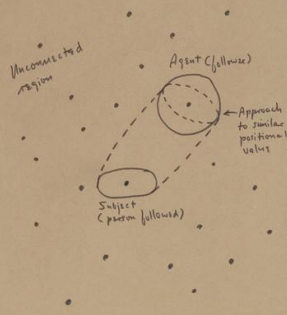 Unconnected
region
Agent (follower)
Approach
to similar
positional
value
Subject
(person followed)